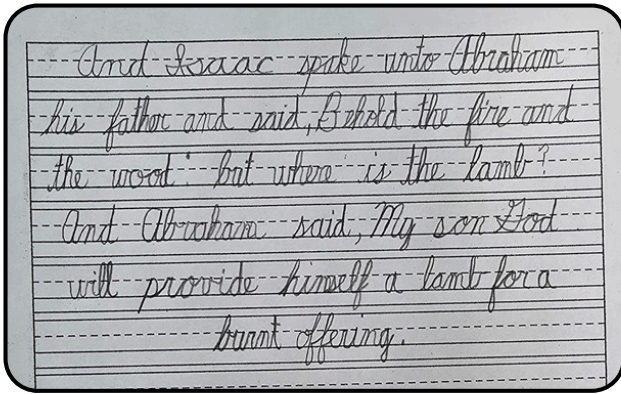 And Isaac spake unto Abraham
his father and said, Behold the fire and
the wood: but where is the lamb?
And Abraham said, My son God
will provide himself a lamb for a
burnt offering.